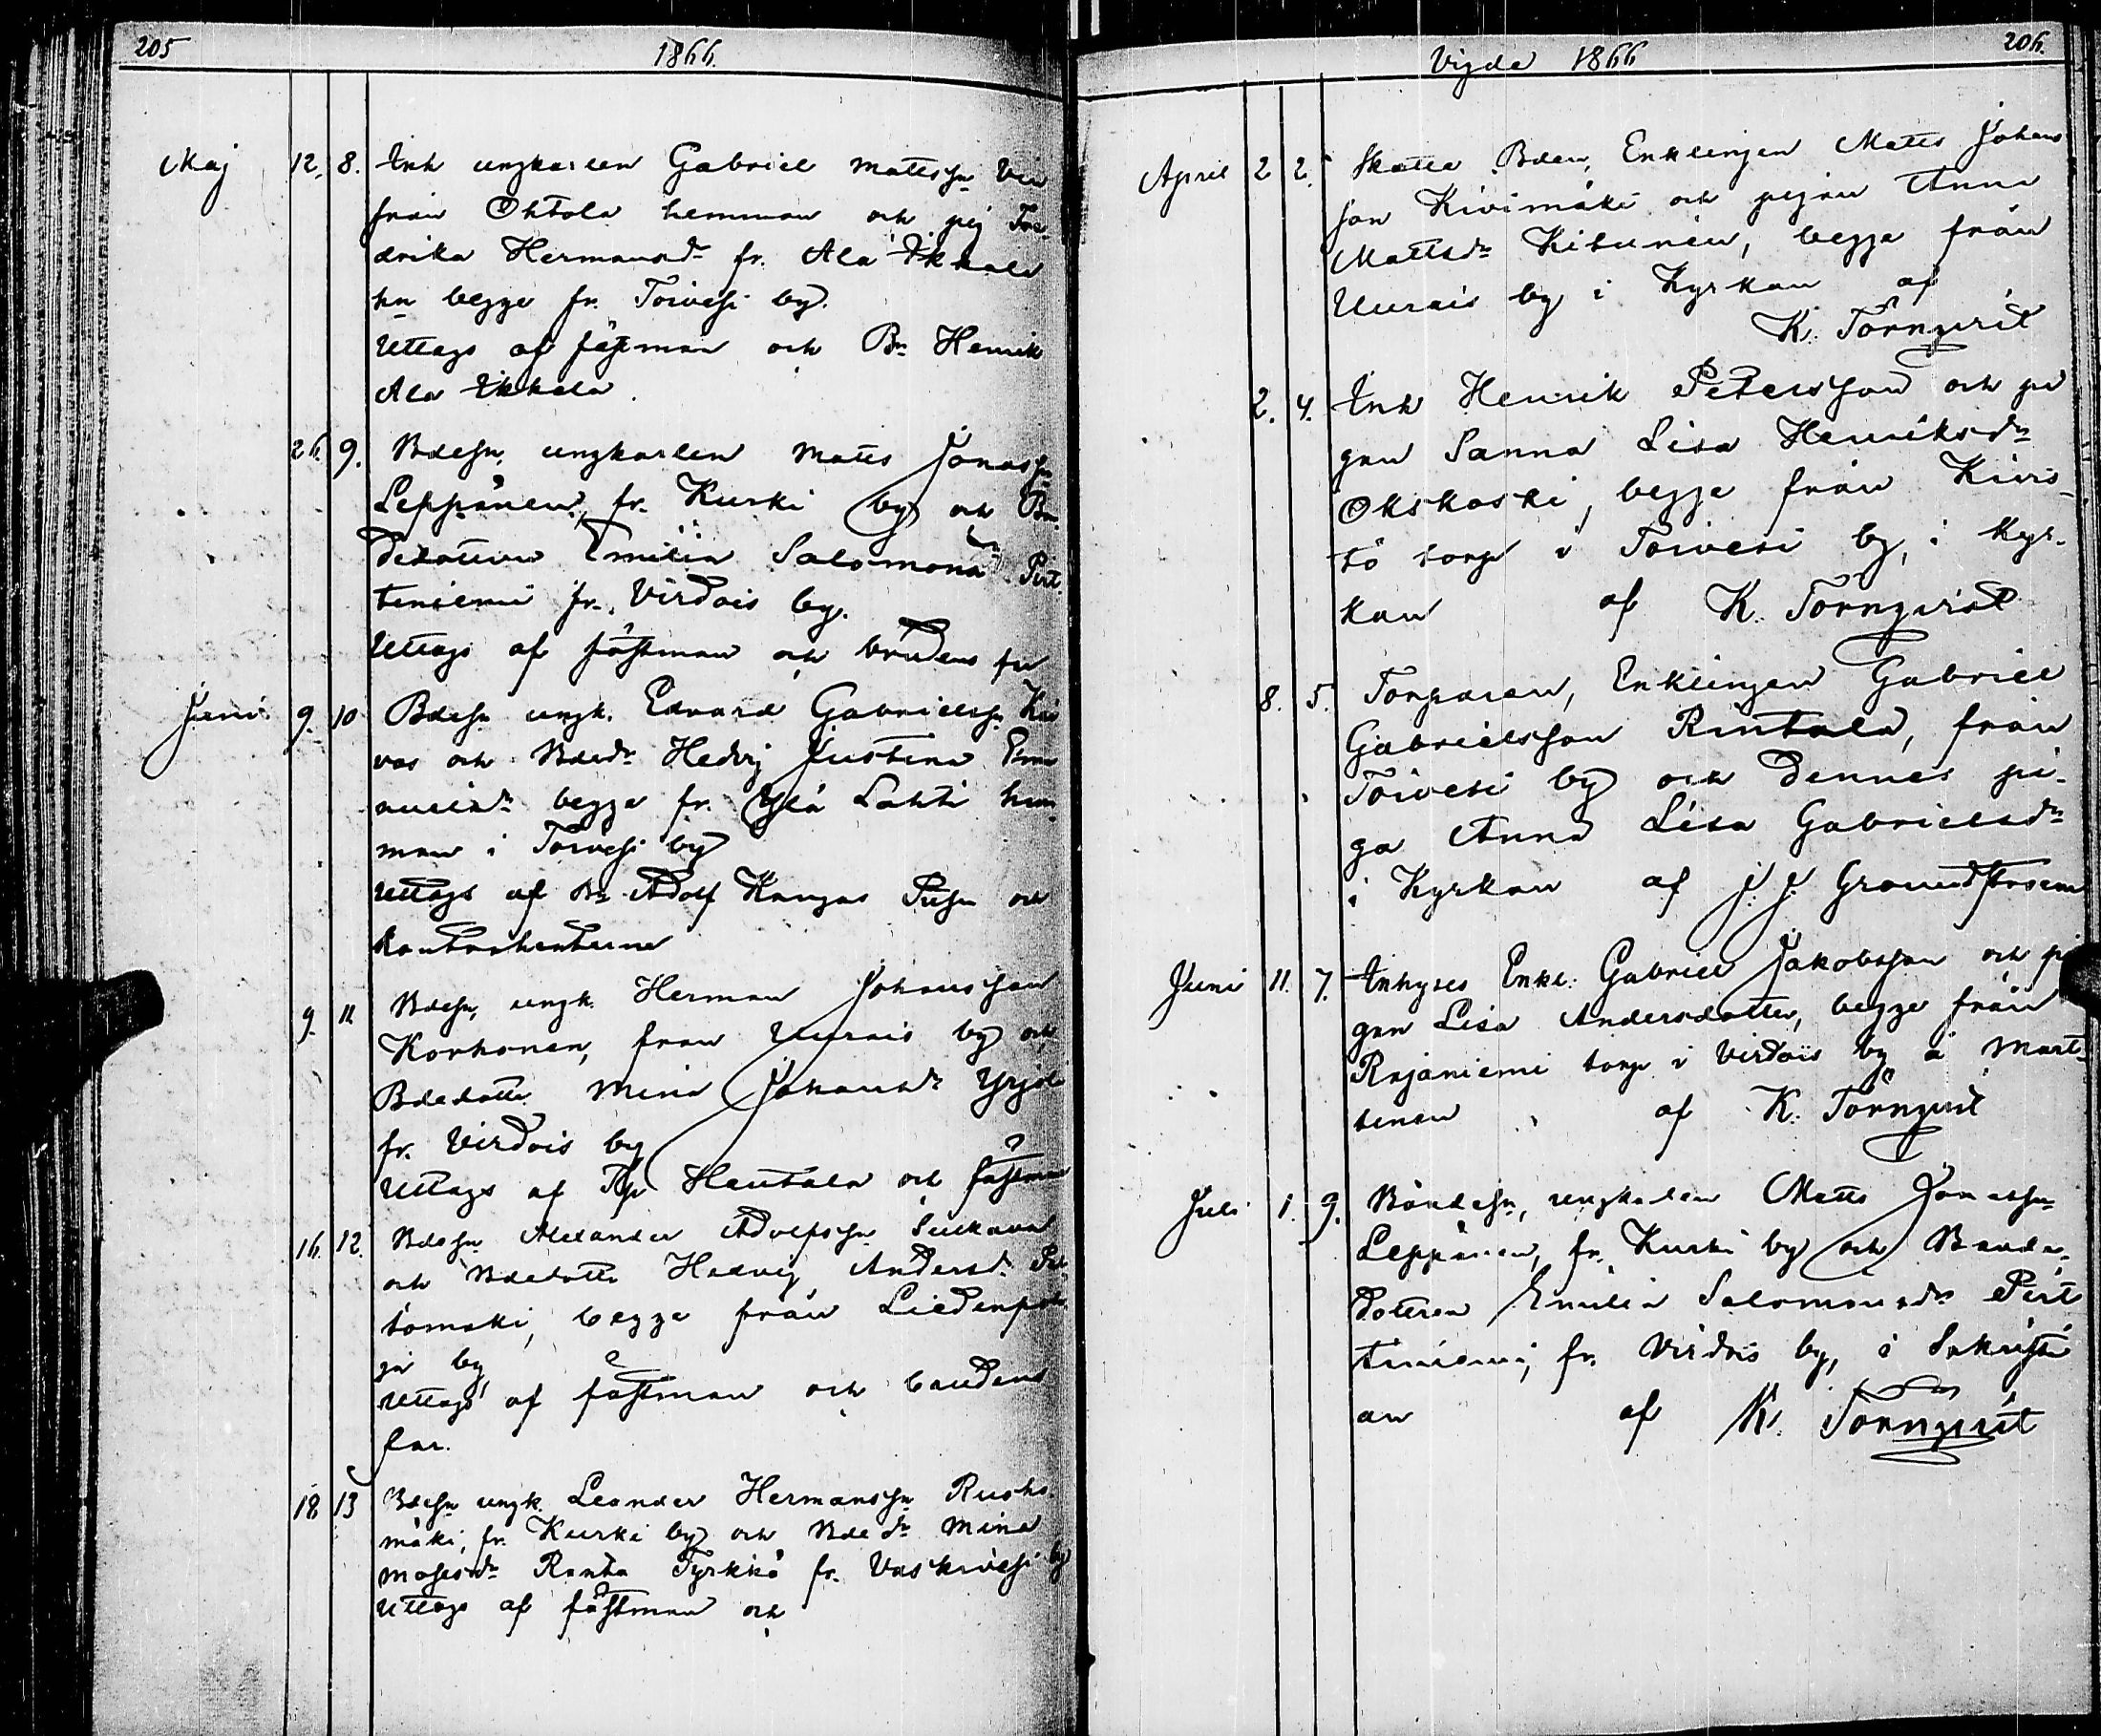 205
1866.
Maj 12. 8. Inh ungkarlen Gabriel Mattssn
från Ohtola hemman och pig Fre-
drika Hermansdr fr. Ala Ikkala
hn begge fr. Toivesi by.
Uttags af fästman och Bn Henrik
Ala Ikkala
26 9. Bdesn, ungkarlen Matts Jonassn
Leppänen, fr. Kurki by och Bn-
dedottren Emilia Salomonsdr Pirt-
tiniemi fr. Virdois by.
Uttags af fästman och brudens far
Juni 9. 10 Bdesn ungk. Edvard Gabrielssn
vas och Bdedr Hedvig Justina Ema-
nuelsdr begge fr. Ylä Lahti hem-
man i Toivesi by
Uttags af Bn Adolf Kangas och
Kontrahenterne
9. 11 Bdesn, ungk. Herman Johansson
Korhonen, från Uurais by och
Bdedottr Mina Johansdr Yrjölä
fr. Virdois by
Uttags af Tp Hautala och fästman
16. 12. Bdesn Alexander Adolfssn
och Bdedottr Hedvig Andersdr
tomäki, begge från Liedenpoh-
ja by
Uttags af fästman och brudens
far.
18 13 Bdesn ungk. Leander Hermanssn
mäki, fr. Kurki by och Bdedr Mina
Mosesdr Ranta Tyrkkö fr. Vaskivesi by
Uttags af fästman och
Vigde 1866
206.
April 2 2. Skatte Bden, Enklingen Matts Johans
son Kivimäki och pigan Anna
Mattsdr Kitunen, begge från
Uurais by i Kyrkan af
K. Törnqvist
2. 4. Inh Henrik Petersson och pi
gan Sanna Lisa Henriksdr
Okskoski, begge från Kivis-
tö torp i Toivesi by, i Kyr-
kan af K. Törnqvist
8. 5. Torparen, Enklingen Gabriel
Gabrielsson Rintala, från
Toivesi by och dennes pi-
ga Anna Lisa Gabrielsdr
i Kyrkan af J. J. Groundstroem
Juni 11. 7. Inhyses Enkl. Gabriel Jakobsson och pi
gan Lisa Andersdotter, begge från
Rajaniemi torp i Virdois by å Mart-
tinen af K. Törnqvist
Juli 1. 9. Bondesn, ungkarlen Matts Jonassn
Leppänen, fr. Kurki by och Bonde-
dottren Emilia Salomonsdr Pirt
tiniemi, fr. Virdois by, i Sakristi
an af K. Törnqvist